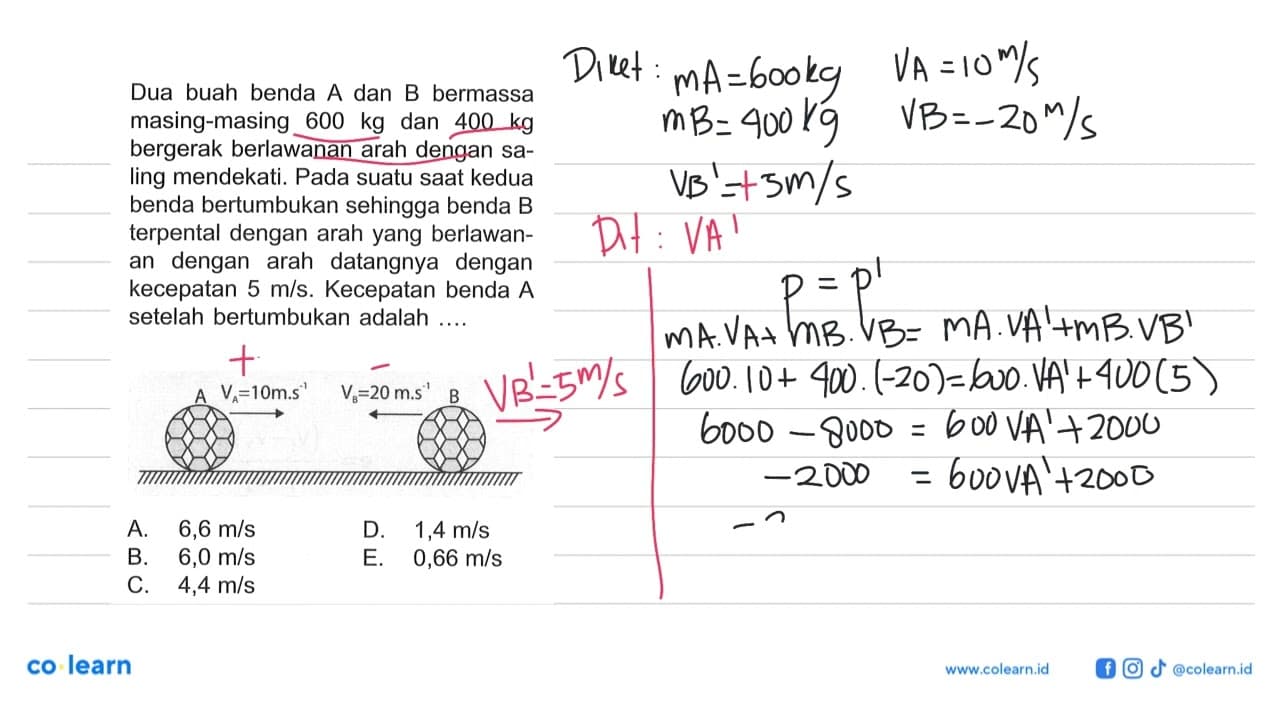 Dua buah benda A dan B bermassa
masing-masing 600 kg dan 400 kg
bergerak berlawanan arah dengan sa-
ling mendekati. Pada suatu saat kedua
benda bertumbukan sehingga benda B
terpental dengan arah yang berlawan-
an dengan arah datangnya dengan
kecepatan 5 m/s. Kecepatan benda A
setelah bertumbukan adalah ....
+ -
A VA=10m.s⁻¹ VB=20 m.s⁻¹ B VB'=5m/s
A. 6,6 m/s
B. 6,0 m/s
C. 4,4 m/s
D. 1,4 m/s
E. 0,66 m/s
Diket : mA=600kg VA=10 m/s
mB=400 kg VB=-20 m/s
VB'=+5m/s
Dit : VA'
P = P'
mA.VA+ mB.VB= mA.VA'+mB.VB'
600.10+ 400.(-20)=600.VA'+400(5)
6000 - 8000 = 600 VA'+2000
-2000 = 600VA'+2000
co·learn
www.colearn.id @colearn.id